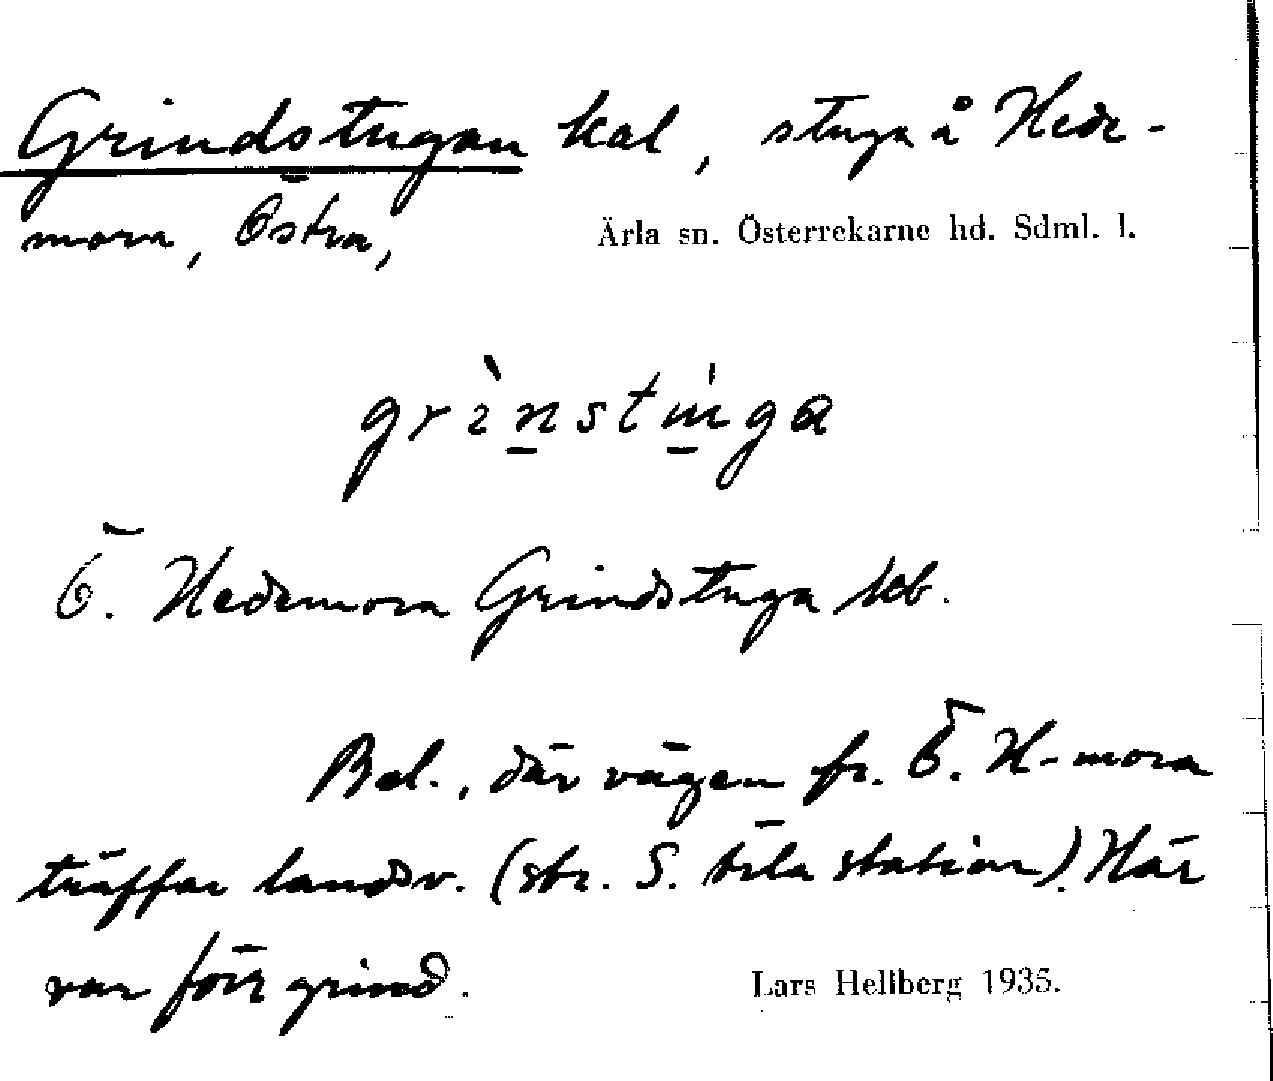 Grindstugan kal, stuga å Hede-
mora, Östra, Ärla sn. Österrekarne hd. Sdml. l.
grìnstùga
Ö. Hedemora Grindstuga kb.
Bel., där vägen fr. Ö. H-mora
träffar landsv. (str. S. Ärla station). Här
var förr grind.
Lars Hellberg 1935.